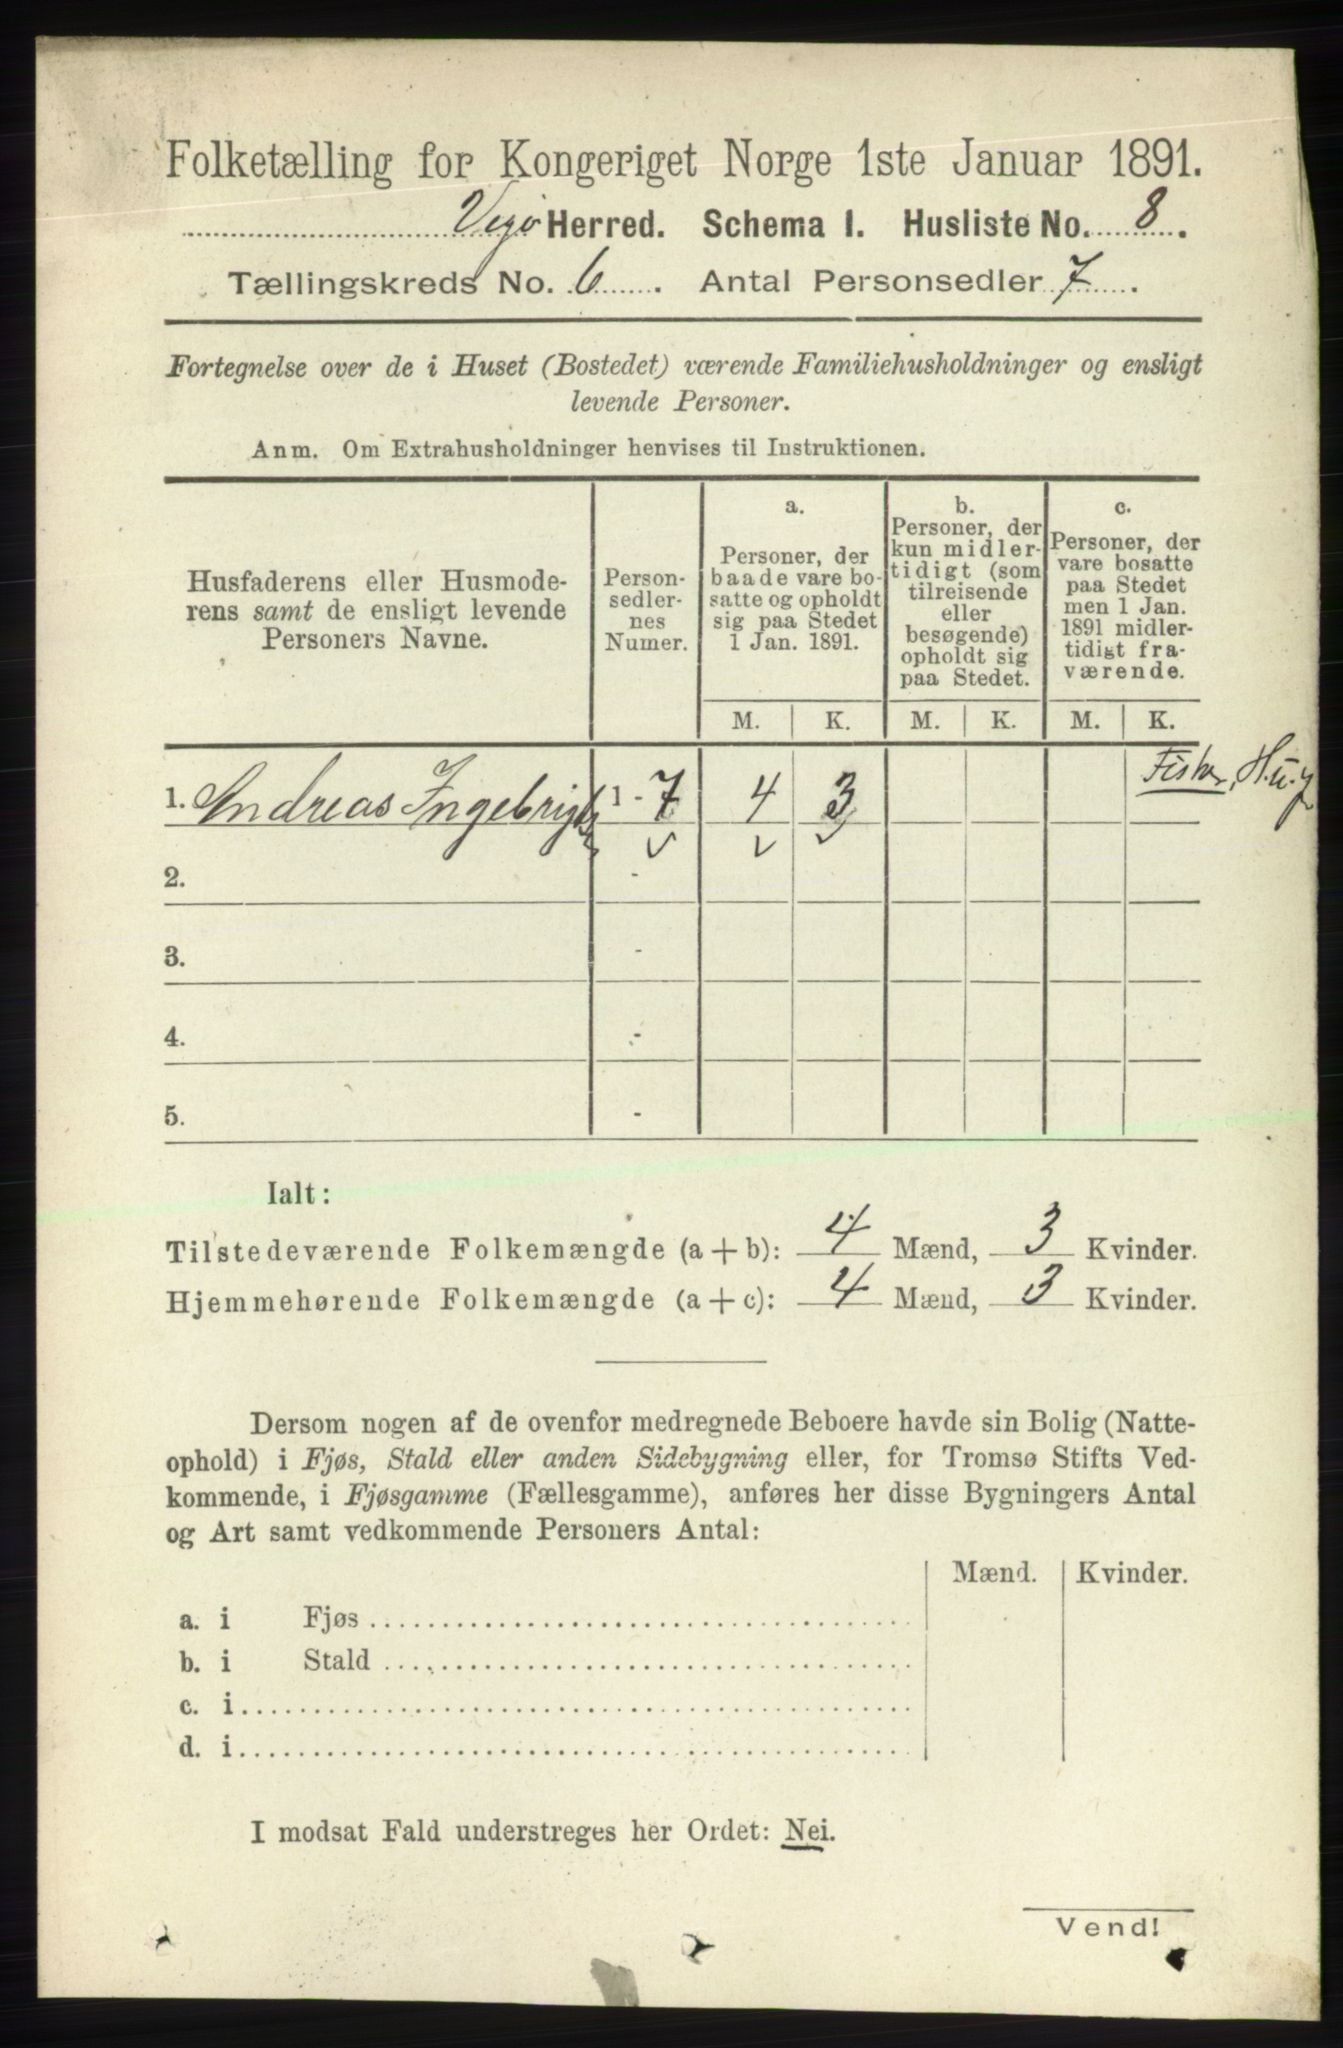 Folketælling for Kongeriget Norge 1ste Januar 1891.
Vegø Herred. Schema I. Husliste No. 8.
Tællingskreds No. 6. Antal Personsedler 7.
Fortegnelse over de i Huset (Bostedet) værende Familiehusholdninger og ensligt
levende Personer.
Anm. Om Extrahusholdninger henvises til Instruktionen.
Husfaderens eller Husmode-
rens samt de ensligt levende
Personers Navne.
Person-
sedler-
nes
Numer.
a.
Personer, der
baade vare bo-
satte og opholdt
sig paa Stedet
1 Jan. 1891.
b.
Personer, der
kun midler-
tidigt (som
tilreisende
eller
besøgende)
opholdt sig
paa Stedet.
c.
Personer, der
vare bosatte
paa Stedet
men 1 Jan.
1891 midler-
tidigt fra-
værende.
M. K. M. K. M. K.
1. Andreas Ingebrigtsen 1 - 7 4 3 Fisker, H. u. J
2. -
3. -
4. -
5. -
Ialt:
Tilstedeværende Folkemængde (a + b): 4 Mænd, 3 Kvinder.
Hjemmehørende Folkemængde (a + c): 4 Mænd, 3 Kvinder.
Dersom nogen af de ovenfor medregnede Beboere havde sin Bolig (Natte-
ophold) i Fjøs, Stald eller anden Sidebygning eller, for Tromsø Stifts Ved-
kommende, i Fjøsgamme (Fællesgamme), anføres her disse Bygningers Antal
og Art samt vedkommende Personers Antal:
Mænd. Kvinder.
a. i Fjøs
b. i Stald
c. i
d. i
I modsat Fald understreges her Ordet: Nei.
Vend!